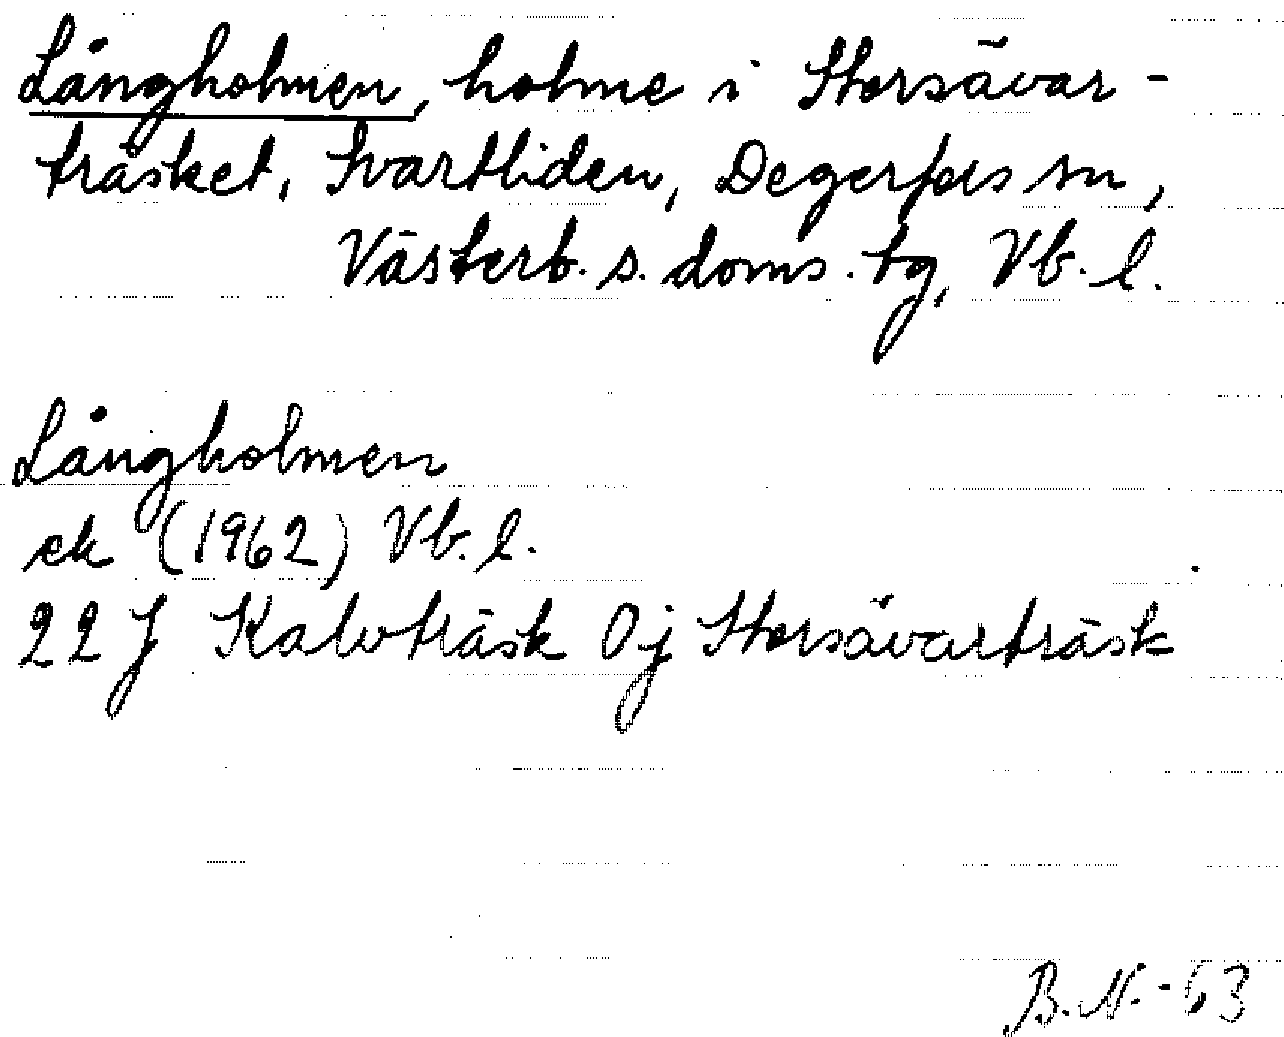 Långholmen, holme i Storsävar-
träsket, Svartliden, Degerfors sn,
Västerb. s. doms. tg, Vb. l.
Långholmen
ek (1962) Vb. l.
22 J Kalvträsk 0j Storsävarträsk
B. N. - 63